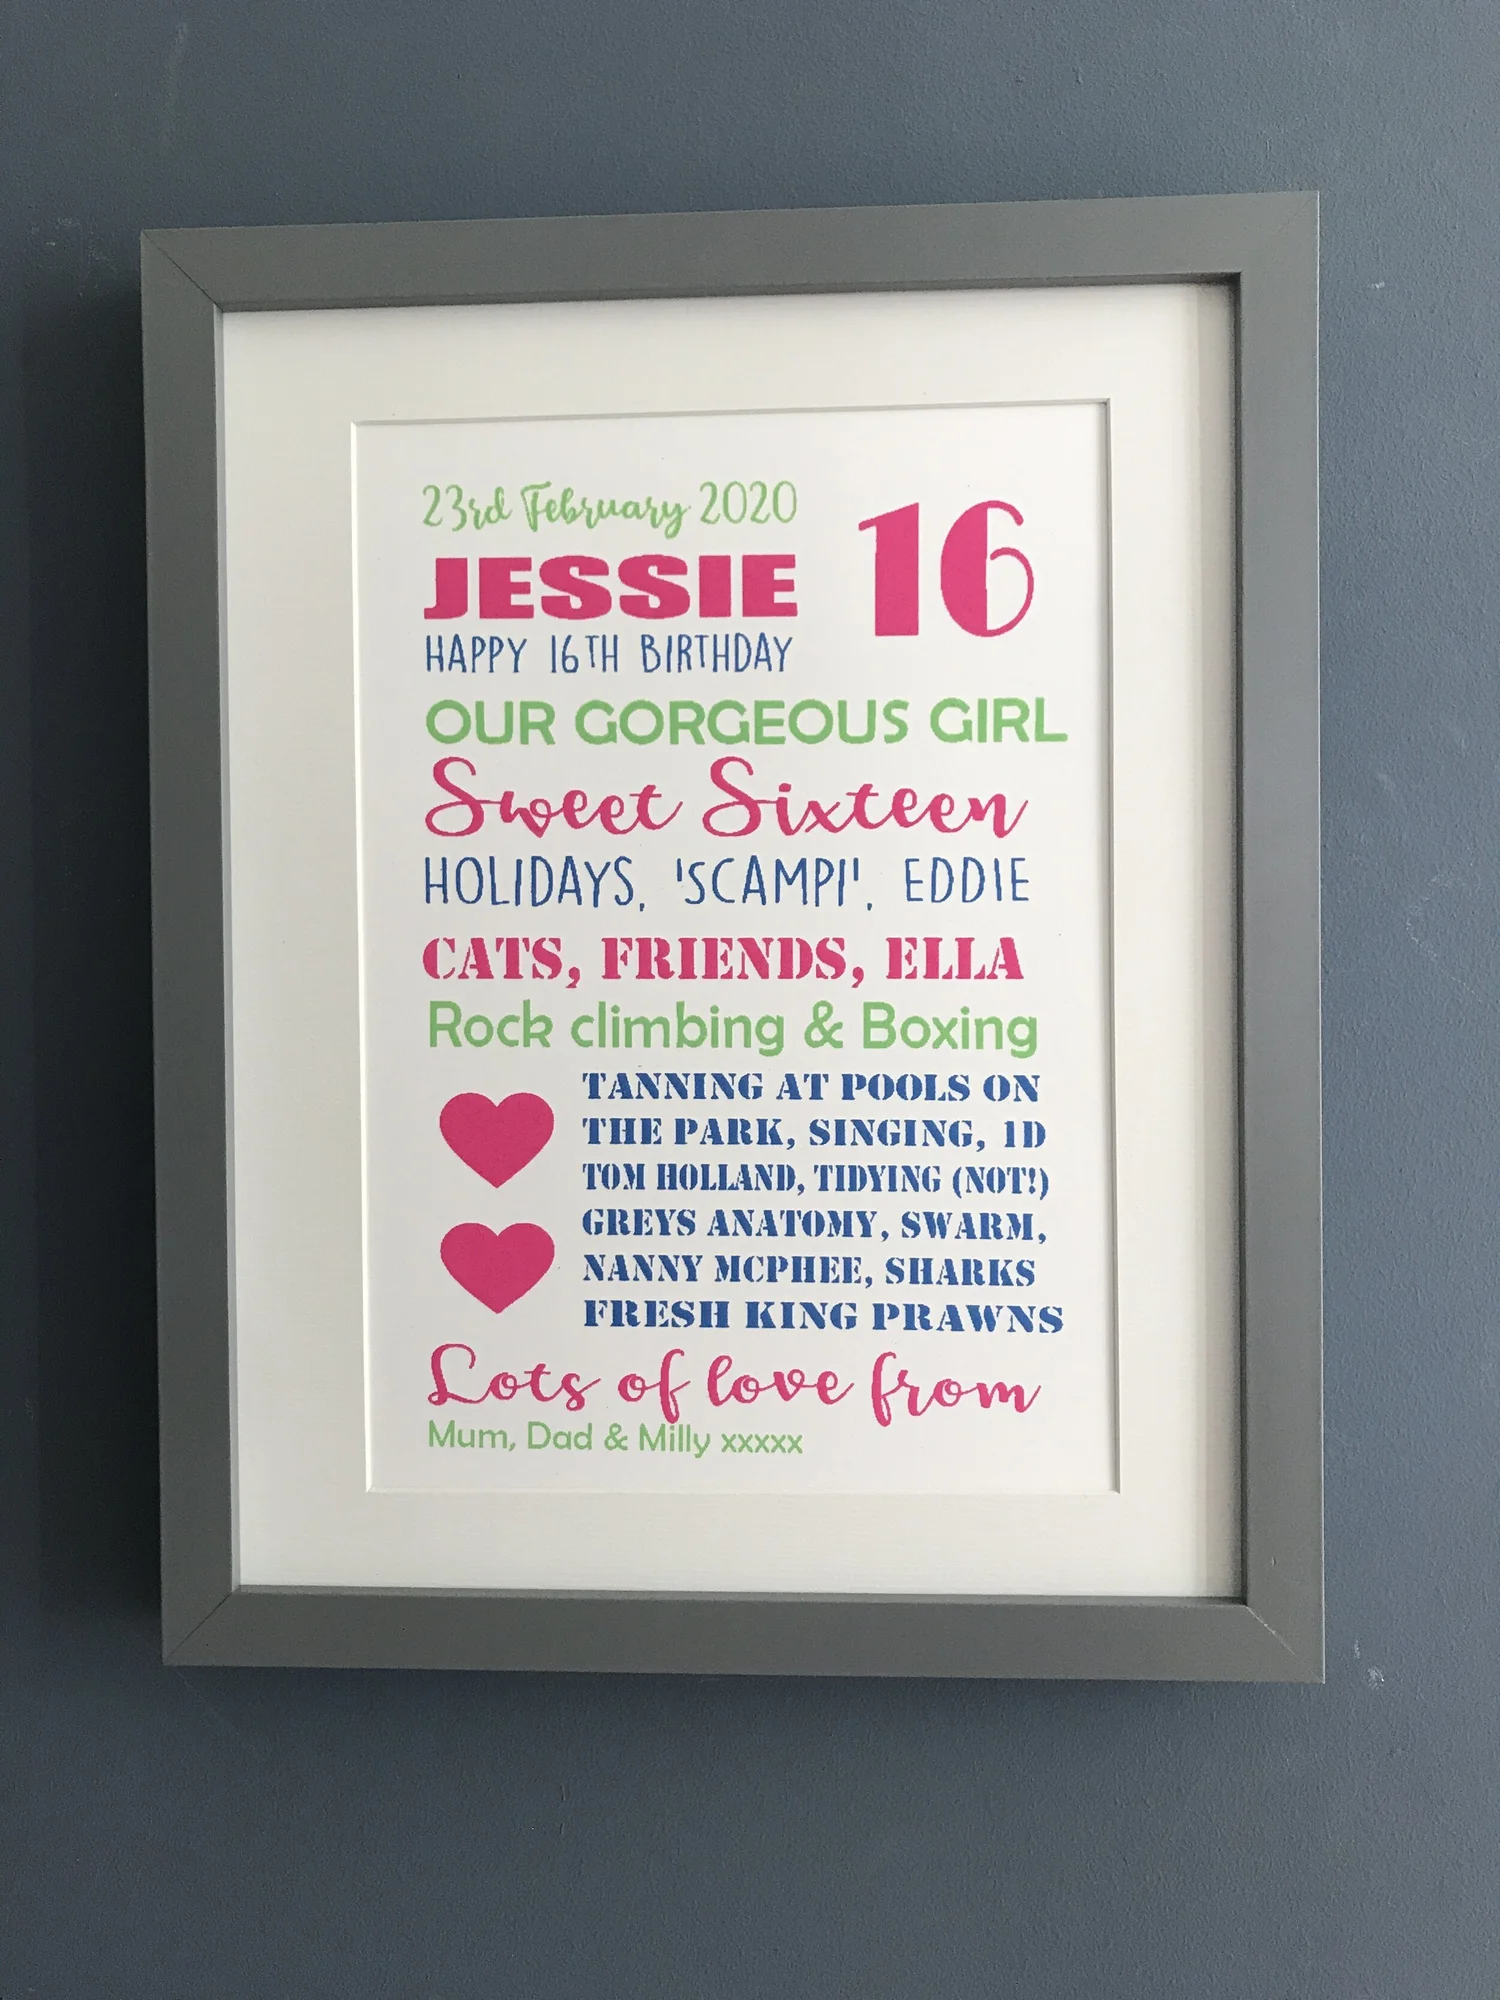 23rd February 2020
JESSIE
16
HAPPY 16TH BIRTHDAY
OUR GORGEOUS GIRL
Sweet Sixteen
HOLIDAYS, 'SCAMPI', EDDIE
CATS, FRIENDS, ELLA
Rock climbing & Boxing
TANNING AT POOLS ON
THE PARK, SINGING, 1D
TOM HOLLAND, TIDYING (NOT!)
GREYS ANATOMY, SWARM,
NANNY MCPHEE, SHARKS
FRESH KING PRAWNS
Lots of love from
Mum, Dad & Milly xxxxx